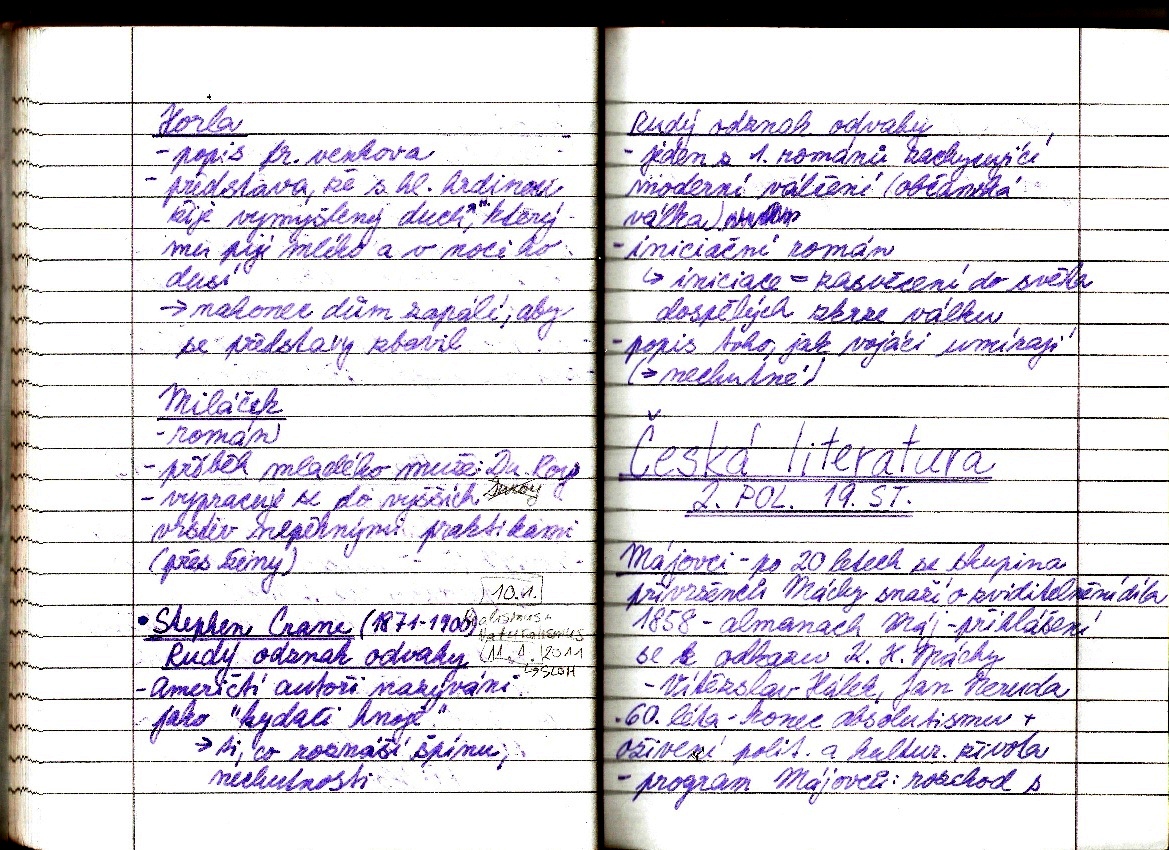 Horla
- popis fr. venkova
- představa, že s hl. hrdinou
žije vymyšlený duch, který
mu pije mléko a v noci ho
dusí
→ nakonec dům zapálí, aby
se představy zbavil
Miláček
- román
- příběh mladého muže: Du Roy
- vypracuje se do vyšších
vrstev nepěknými praktikami
(přes ženy)
10.1.
• Stephen Crane (1871-1900)
Naturalismus
Rudý odznak odvahy
11.1.2011
- Američtí autoři nazýváni
jako "kydači hnoje"
→ ti, co roznáší špínu,
nechutnosti
Rudý odznak odvahy
- jeden z 1. románů zachycující
moderní válčení (občanská
válka)
- iniciační román
↳ iniciace = zasvěcení do světa
dospělých skrze válku
- popis toho, jak vojáci umírají
(→ nechutné)
Česká literatura
2. POL. 19. ST.
Májovci - po 20 letech se skupina
přívrženců Máchy snaží o zviditelnění díla
1858 - almanach Máj - přihlášení
se k odkazu K. H. Máchy
- Vítězslav Hálek, Jan Neruda
. 60. léta - konec absolutismu +
oživení polit. a kultur. života
- program Májovců: rozchod s